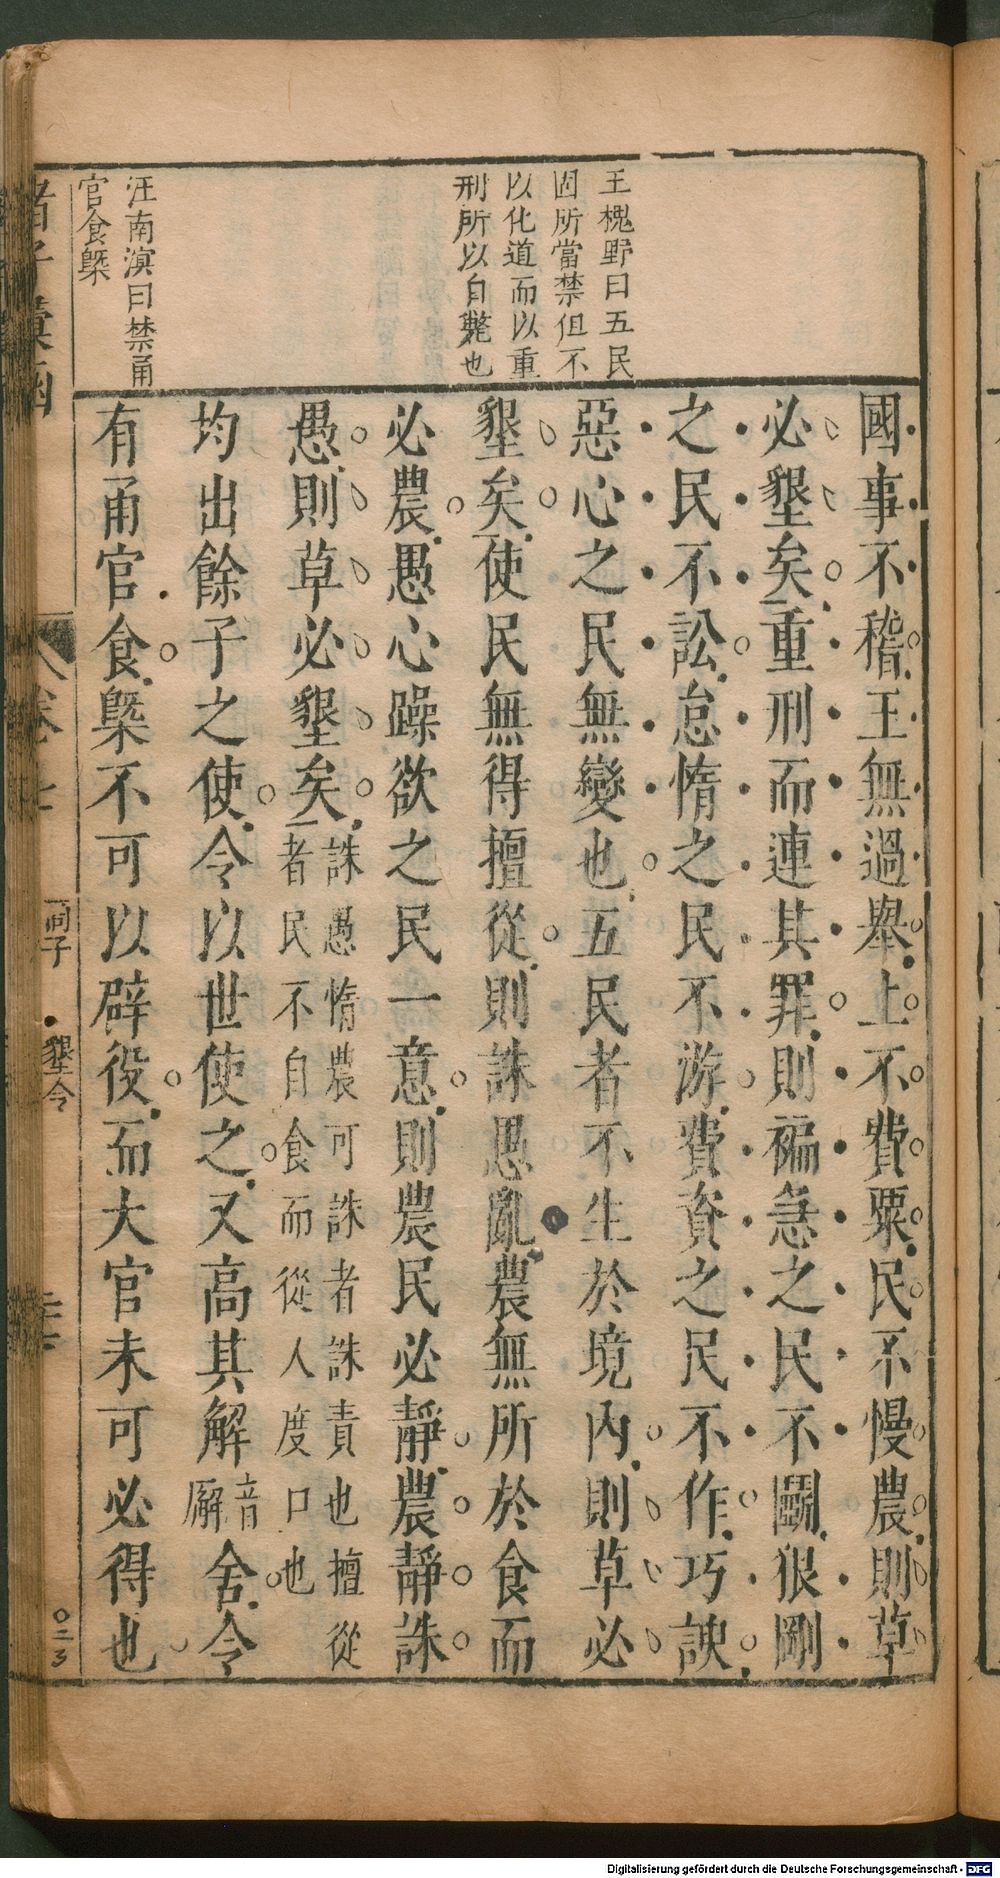 王槐野曰五民
固所當禁但不
以化道而以重
刑所以自斃也
汪南溟曰禁甬
官食槩
國事不稽王無過舉上不費粟民不慢農則草
必墾矣重刑而連其罪則褊急之民不鬬狠剛
之民不訟怠惰之民不游費資之民不作巧諛
惡心之民無變也五民者不生於境內則草必
墾矣使民無得擅從則誅愚亂農無所於食而
必農愚心躁欲之民一意則農民必靜農靜誅
愚則草必墾矣誅愚惰農可誅者誅責也擅從
者民不自食而從人度口也
均出餘子之使令以世使之又高其解音廨舍令
有甬官食槩不可以辟役而大官未可必得也
卷七
商子
墾令
〇二3
Digitalisierung gefördert durch die Deutsche Forschungsgemeinschaft - DFG